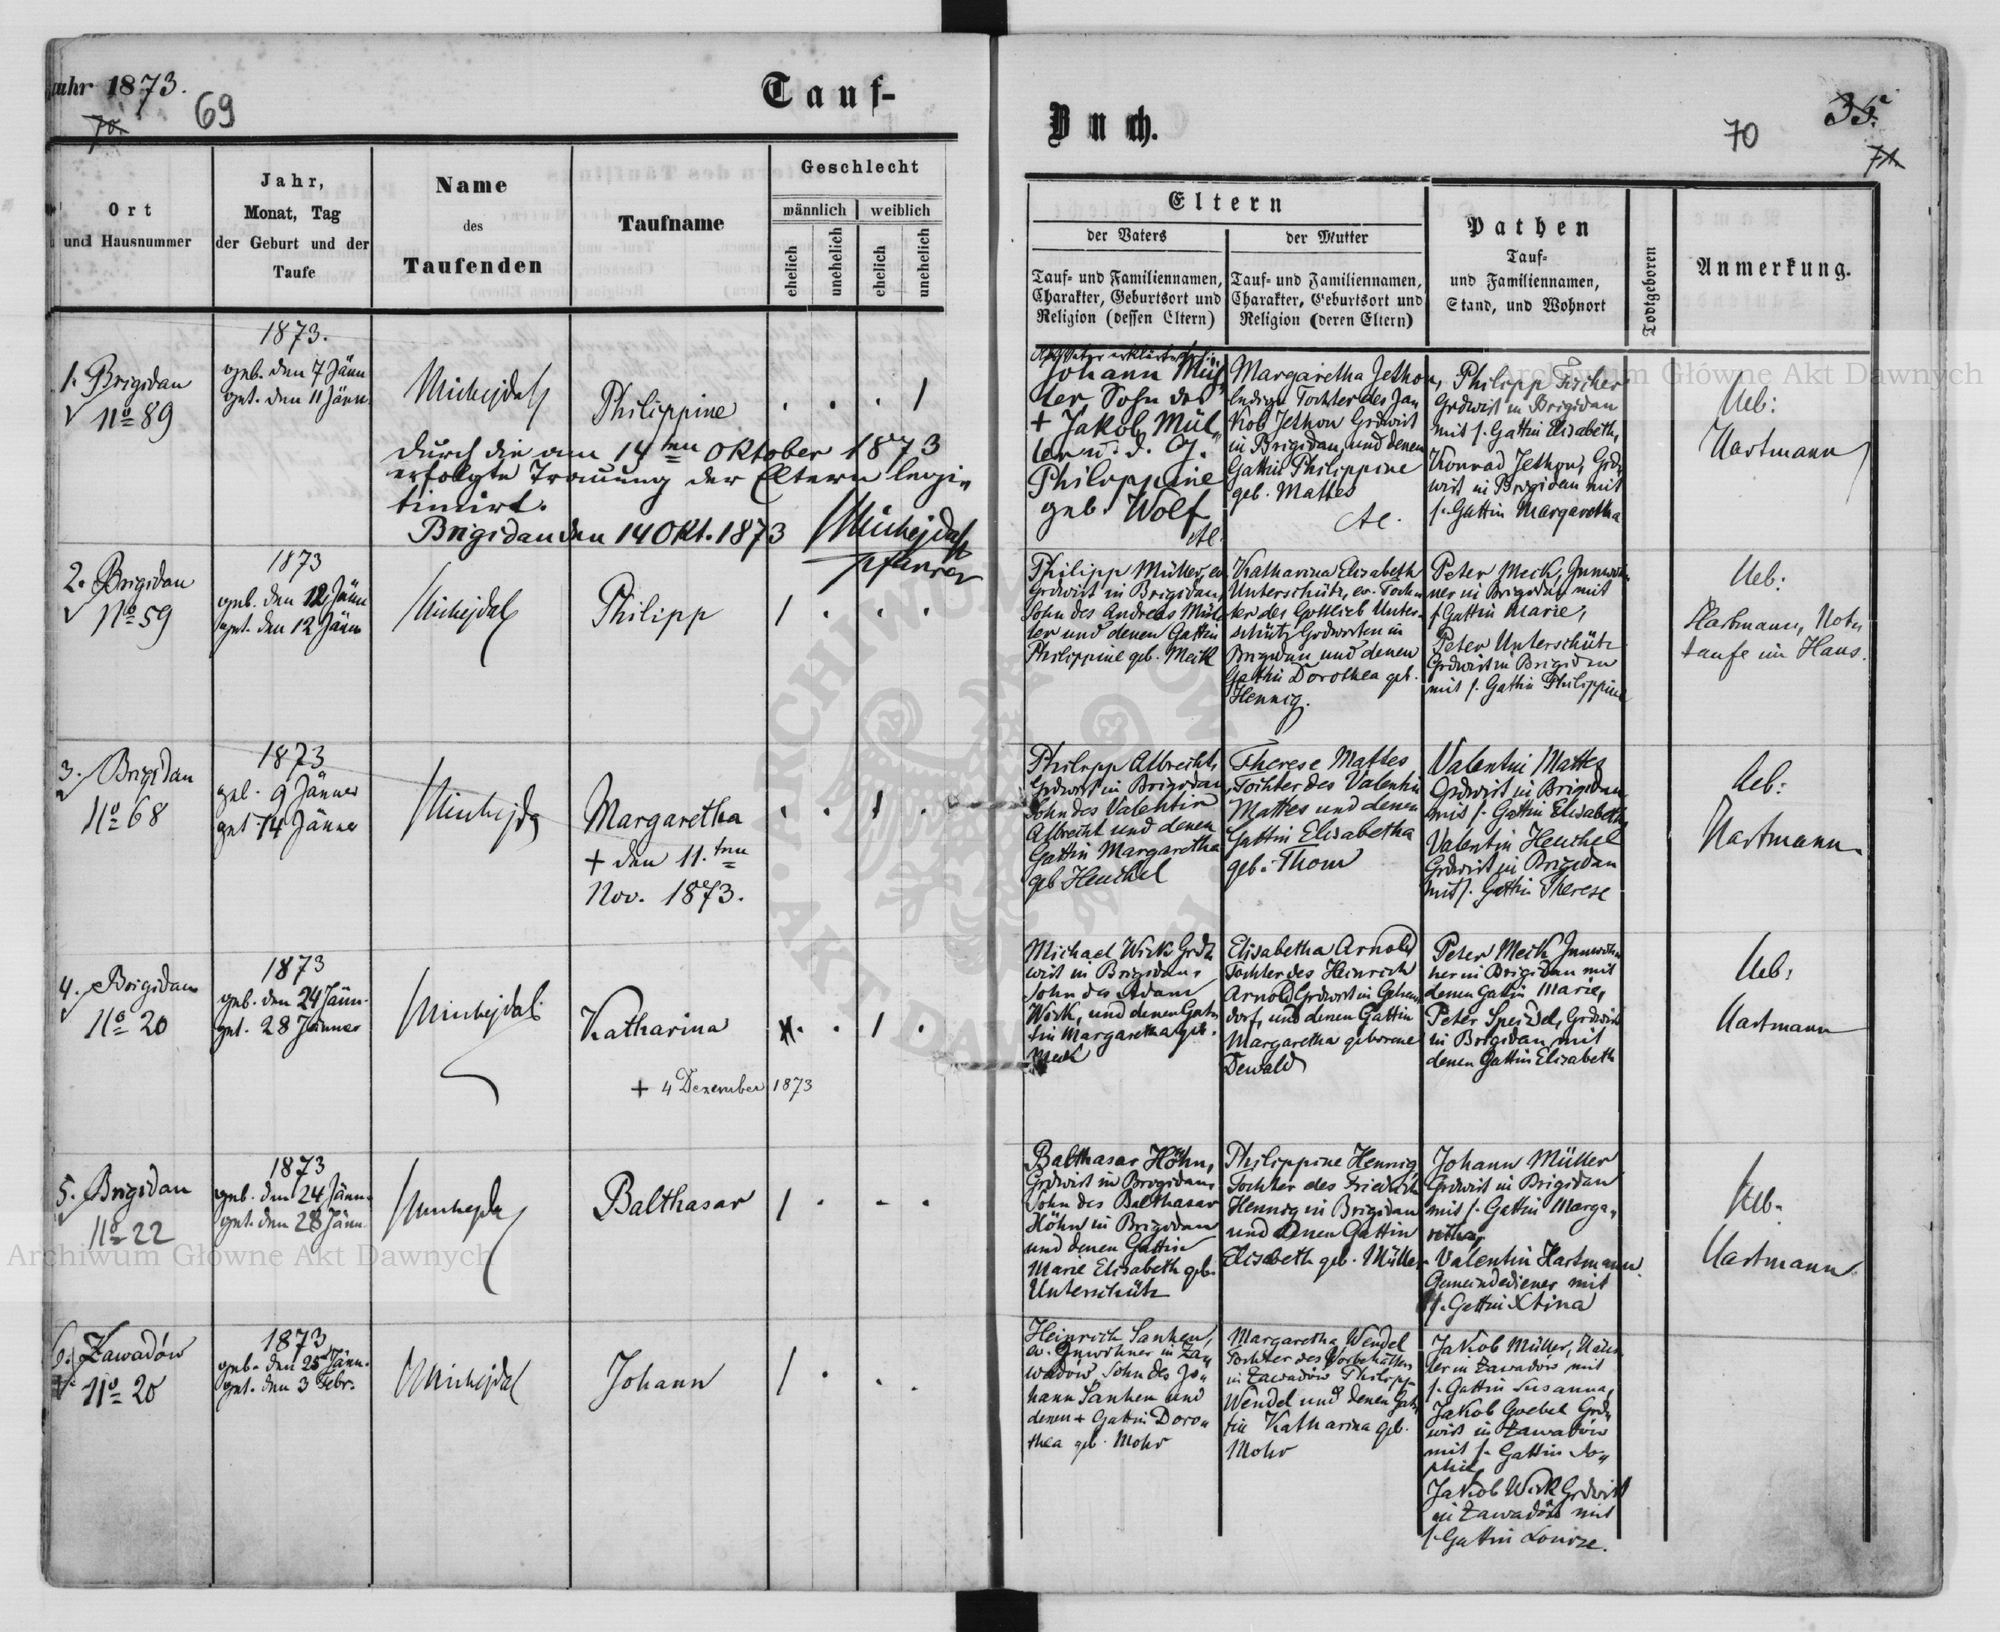 Jahr 1873.
69
Tauf-
Buch.
70
35.
71.
Ort
und Hausnummer
Jahr,
Monat, Tag
der Geburt und der
Taufe
Name
des
Taufenden
Taufname
Geschlecht
männlich
weiblich
ehelich
unehelich
ehelich
unehelich
Eltern
der Vaters
der Mutter
Tauf- und Familiennamen,
Charakter, Geburtsort und
Religion (dessen Eltern)
Tauf- und Familiennamen,
Charakter, Geburtsort und
Religion (deren Eltern)
Pathen
Tauf-
und Familiennamen,
Stand, und Wohnort
Todtgeboren
Anmerkung.
1. Brigidau
No 89
1873.
geb. den 7 Jänn
get. den 11 Jänn.
Michejda
Philippine
. . . 1
durch die am 14ten Oktober 1873
erfolgte Trauung der Eltern legi-
timirt.
Brigidau den 14 Okt. 1873
Michejda
Pfarrer
Johann Mül-
ler Sohn des
+ Jakob Mül-
ler u. d. G.
Philippine
geb. Wolf
AC.
Margaretha Jethon,
ledige Tochter des Ja-
kob Jethon Grdwirt
in Brigidau und denen
Gattin Philippine
geb. Mattes
AC.
Philipp Fischer
Grdwirt in Brigidau
mit s. Gattin Elisabeth,
Konrad Jethon, Grd-
wirt in Brigidau mit
s. Gattin Margaretha
Heb:
Hartmann
2. Brigidau
No 59
1873
geb. den 12 Jänn
get. den 12 Jänn
Michejda
Philipp
1 . . .
Philipp Müller, ev
Grdwirt in Brigidau,
Sohn des Andreas Mül-
ler und denen Gattin
Philippine geb. Meck
Katharina Elisabeth
Unterschütz, ev. Toch-
ter des Gottlieb Unter-
schütz Grdwirten in
Brigidau und denen
Gattin Dorothea geb.
Hennig.
Peter Meck, Inwoh-
ner in Brigidau mit
s. Gattin Marie,
Peter Unterschütz
Grdwirt in Brigidau
mit s. Gattin Philippine
Heb:
Hartmann, Not-
taufe im Haus.
3. Brigidau
No 68
1873
geb. 9 Jänner
get 14 Jänner
Michejda
Margaretha
+ den 11.ten
Nov. 1873.
. . 1 .
Philipp Albrecht,
Grdwirt in Brigidau
Sohn des Valentin
Albrecht und denen
Gattin Margaretha
geb Heuchel
Therese Mattes
Tochter des Valentin
Mattes und denen
Gattin Elisabetha
geb. Thom
Valentin Mattes
Grdwirt in Brigidau
mit s. Gattin Elisabetha
Valentin Heuchel
Grdwirt in Brigidau
mit s. Gattin Therese
Heb:
Hartmann
4. Brigidau
No 20
1873
geb. den 24 Jänn.
get. 28 Jänner
Michejda
Katharina
+ 4 Dezember 1873
. . 1 .
Michael Wirk Grd-
wirt in Brigidau,
Sohn des Adam
Wirk, und denen Gat-
tin Margaretha geb.
Meck
Elisabetha Arnold
Tochter des Heinrich
Arnold Grdwirt in Gelsen-
dorf, und denen Gattin
Margaretha geborene
Dewald
Peter Meck Inwoh-
ner in Brigidau mit
denen Gattin Marie,
Peter Speidel, Grdwirt
in Brigidau mit
denen Gattin Elisabeth
Heb:
Hartmann
5. Brigidau
No 22
1873
geb. den 24 Jänn
get. den 28 Jänn.
Michejda
Balthasar
1 . . .
Balthasar Höhn,
Grdwirt in Brigidau,
Sohn des Balthasar
Höhn in Brigidau
und denen Gattin
Marie Elisabeth geb.
Unterschütz
Philippine Hennig
Tochter des Friedrich
Hennig in Brigidau
und denen Gattin
Elisabeth geb. Müller
Johann Müller
Grdwirt in Brigidau
mit s. Gattin Marga-
retha,
Valentin Hartmann
Gemeindediener mit
s. Gattin Xtina
Heb.
Hartmann
6. Zawadów
No 20
1873
geb. den 25 Jänn.
get. den 3 Febr.
Michejda
Johann
1 . . .
Heinrich Sanhen,
ev. Inwohner in Za-
wadów, Sohn des Jo-
hann Sanhen und
denen + Gattin Doro-
thea geb. Mohr
Margaretha Wendel
Tochter des Vorbehälters
in Zawadów Philipp
Wendel und denen Gat-
tin Katharina geb.
Mohr
Jakob Müller, Häus-
ler in Zawadów mit
s. Gattin Susanna,
Jakob Goebel Grd-
wirt in Zawadów
mit s. Gattin So-
phie,
Jakob Wirk Grdwirt
in Zawadów mit
s. Gattin Louise.
Archiwum Główne Akt Dawnych
Archiwum Główne Akt Dawnych
ARCHIWUM GŁÓWNE AKT DAWNYCH